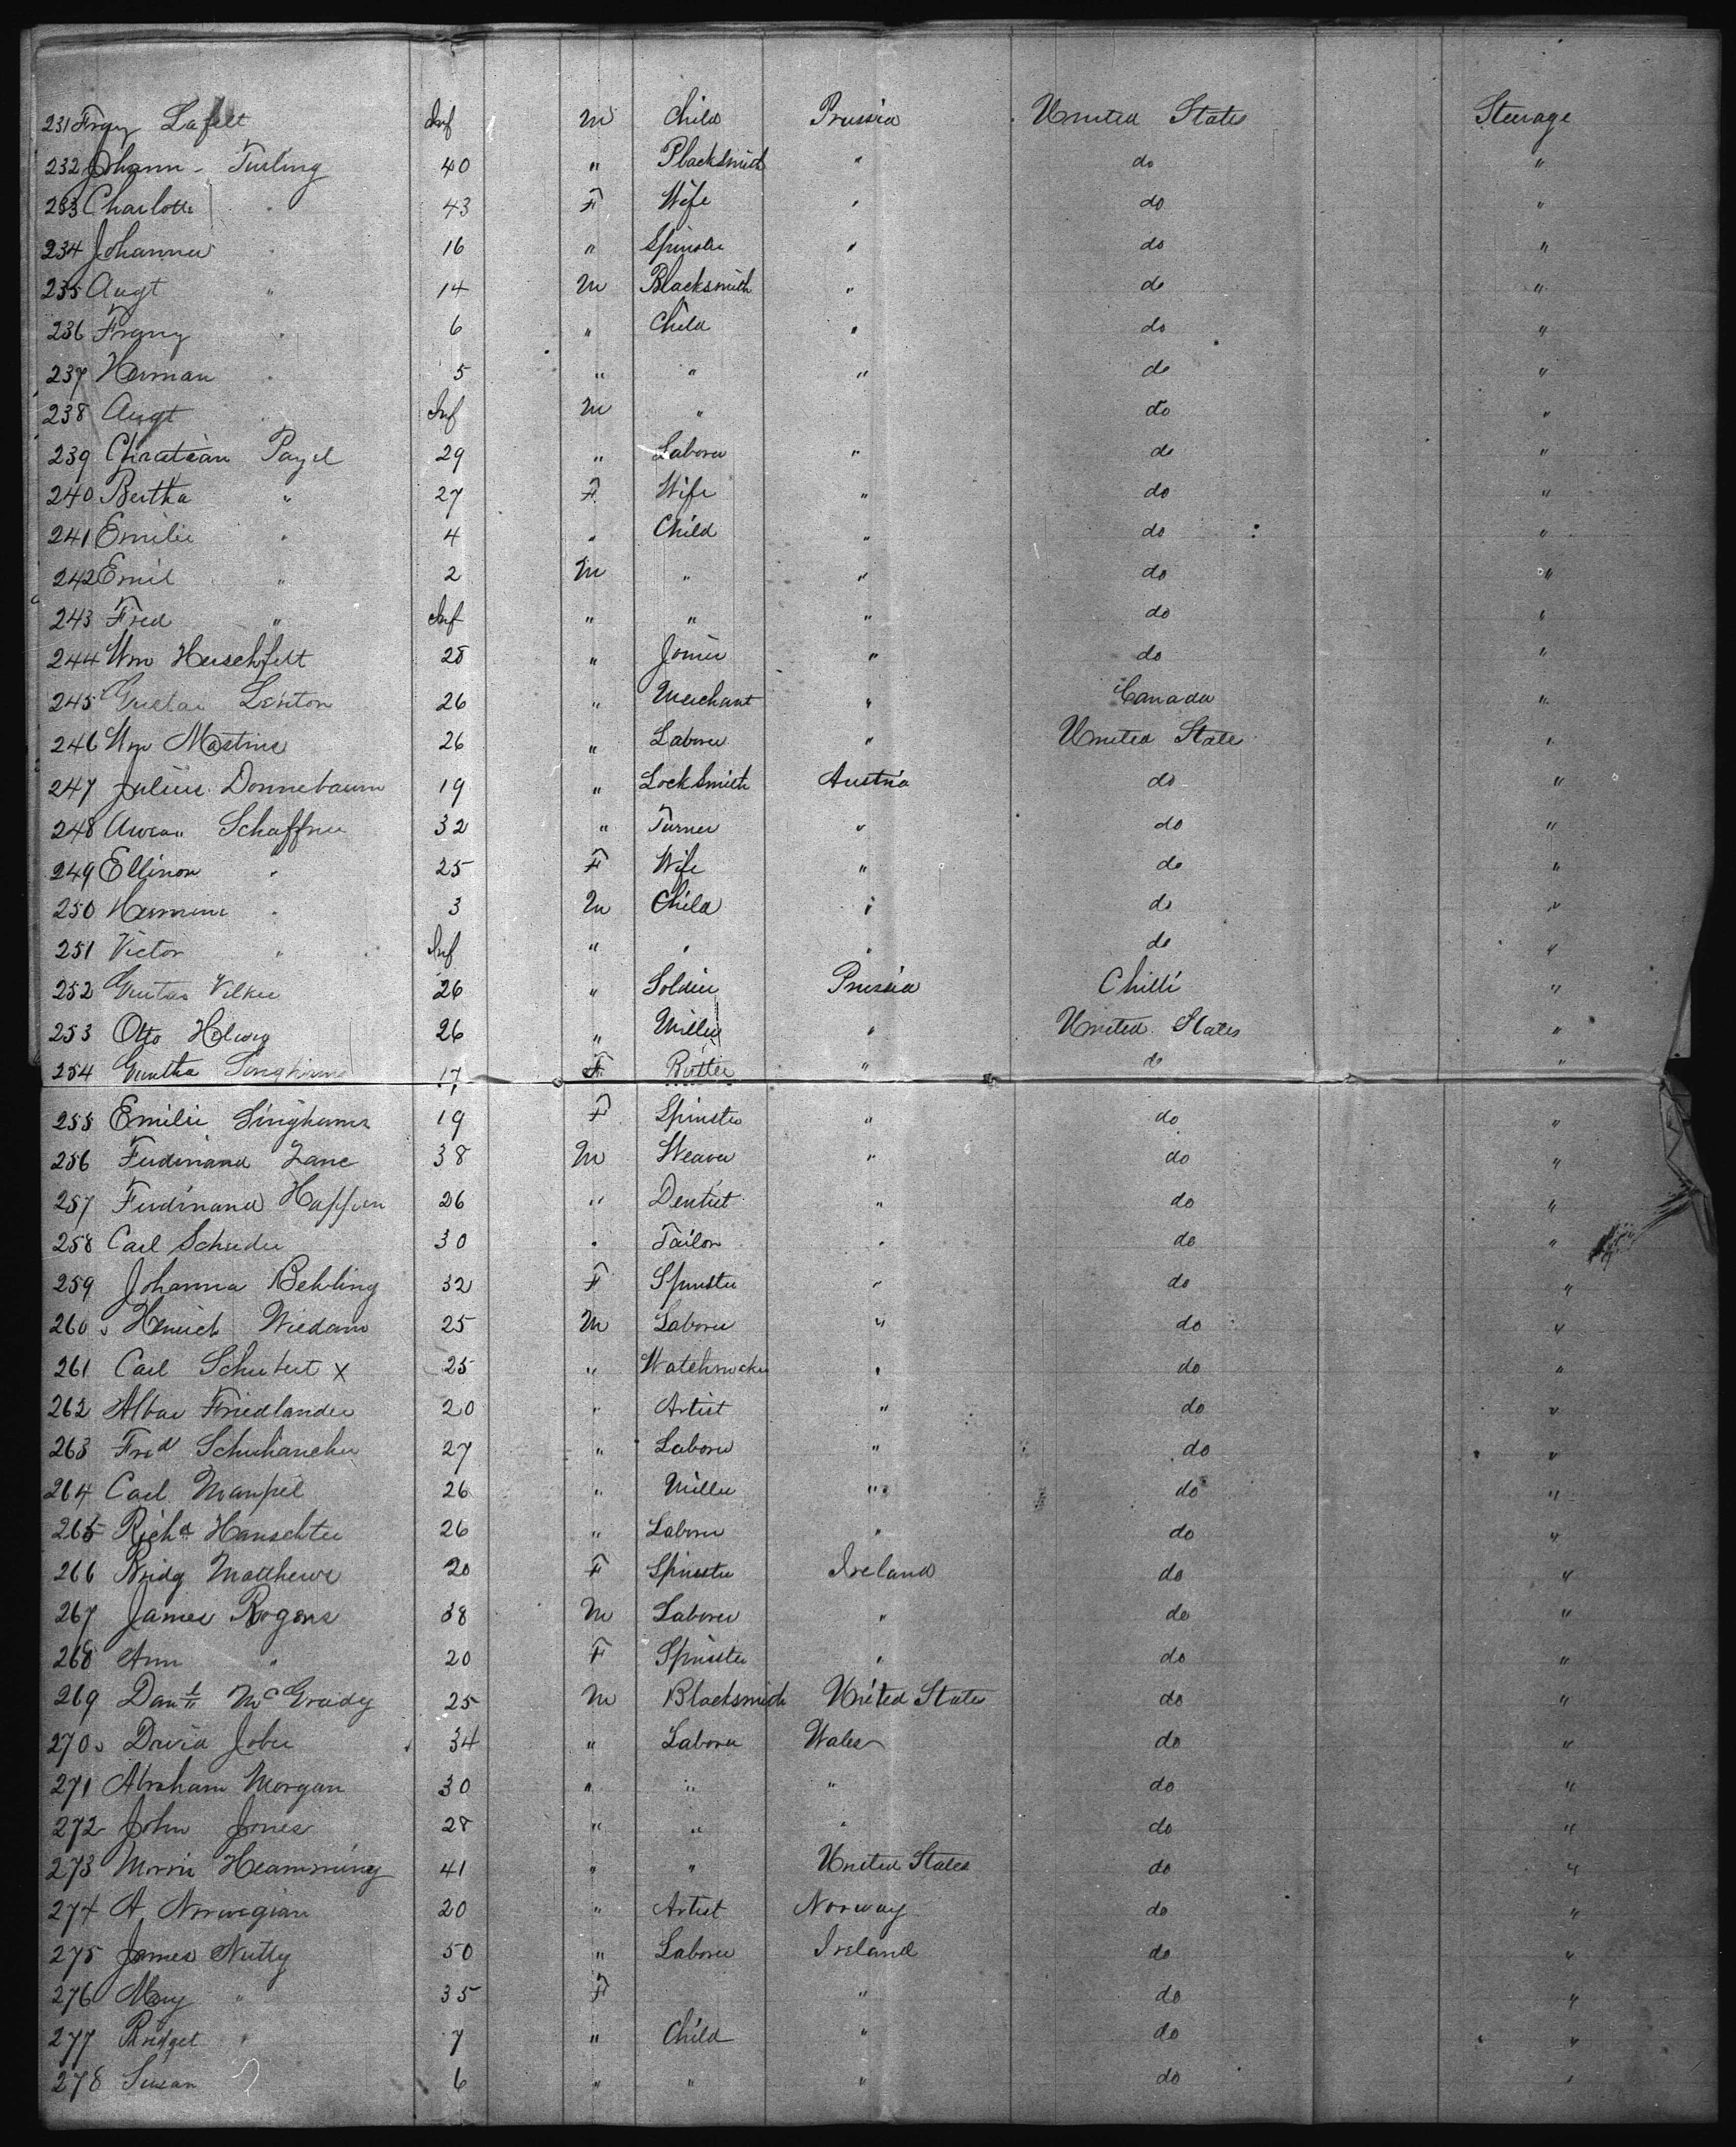 231 Franz Lafelt Inf M Child Prussia United States Steerage
232 Johann Turling 40 " Blacksmith " do "
233 Charlotte " 43 F Wife " do "
234 Johanna " 16 " Spinster " do "
235 Augt " 14 M Blacksmith " do "
236 Franz " 6 " Child " do "
237 Herman " 5 " " " do "
238 Augt " Inf M " do "
239 Christian Pagel 29 " Laborer " do "
240 Bertha " 27 F Wife " do "
241 Emilie " 4 " Child " do "
242 Emil " 2 M " " do "
243 Fred " Inf " " " do "
244 Wm Herschfelt 28 " Joiner " do "
245 Gustav 26 " Merchant " Canada "
246 Wm 26 " Laborer " United State "
247 Julius Donnebaum 19 " Locksmith Austria do "
248 Schaffner 32 " Turner " do "
249 Ellinor " 25 F Wife " do "
250 Hermine " 3 M Child " do "
251 Victor " Inf " " " do "
252 Gustav 26 " Soldier Prussia Chilli "
253 Otto Helwig 26 " Miller " United States "
254 17 F " do "
255 Emilie Singhams 19 F Spinster " do "
256 Ferdinand Zane 38 M Weaver " do "
257 Ferdinand 26 " Dentist " do "
258 Carl Schuder 30 " Tailor " do "
259 Johanna Behling 32 F Spinster " do "
260 Heinrich Wiedam 25 M Laborer " do "
261 Carl Schubert x 25 " Watchmaker " do "
262 Friedlander 20 " Artist " do "
263 Fred 27 " Laborer " do "
264 Carl Manpel 26 " Miller " do "
265 Richd Hanschter 26 " Laborer " do "
266 Bridg Matthews 20 F Spinster Ireland do "
267 James Rogers 38 M Laborer " do "
268 Ann " 20 F Spinster " do "
269 Danll McGrady 25 M Blacksmith United States do "
270 David 34 " Laborer Wales do "
271 Abraham Morgan 30 " " " do "
272 John Jones 28 " " " do "
273 Morris 41 " " United States do "
274 A Norwegian 20 " Artist Norway do "
275 James Nutty 50 " Laborer Ireland do "
276 Mary " 35 F " do "
277 Bridget " 7 " Child " do "
278 Susan " 6 " " " do "